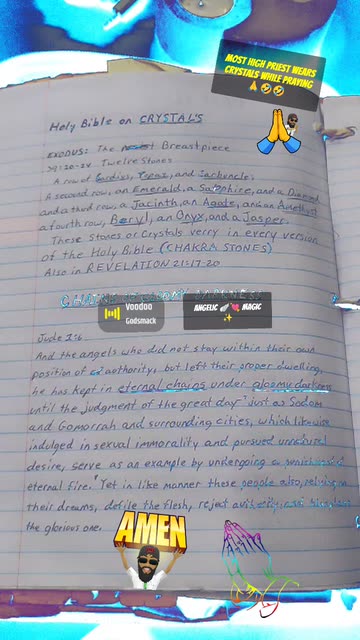 MOST HIGH PRIEST WEARS
CRYSTALS WHILE PRAYING
🙏🤣🤣
Holy Bible on CRYSTAL'S
EXODUS: The Breastpiece
Twelve Stones
A row of Sardius, Topaz, and Carbuncle;
A second row, an Emerald, a Sapphire, and a Diamond
and a third row, a Jacinth, an Agate, and an Amethyst
a fourth row, Beryl, an Onyx, and a Jasper.
These Stones or Crystals verry in every version
of the Holy Bible (CHAKRA STONES)
Also in REVELATION 21:17-20
Voodoo
Godsmack
ANGELIC 🪄 💘 MAGIC
✨
Jude 1:6
And the angels who did not stay within their own
position of authority, but left their proper dwelling,
he has kept in eternal chains under gloomy darkness
until the judgment of the great day- just as Sodom
and Gomorrah and surrounding cities, which likewise
indulged in sexual immorality and pursued unnatural
desire, serve as an example by undergoing a
eternal fire. Yet in like manner these people also, relying on
their dreams, defile the flesh, reject authority, and
the glorious one.
AMEN